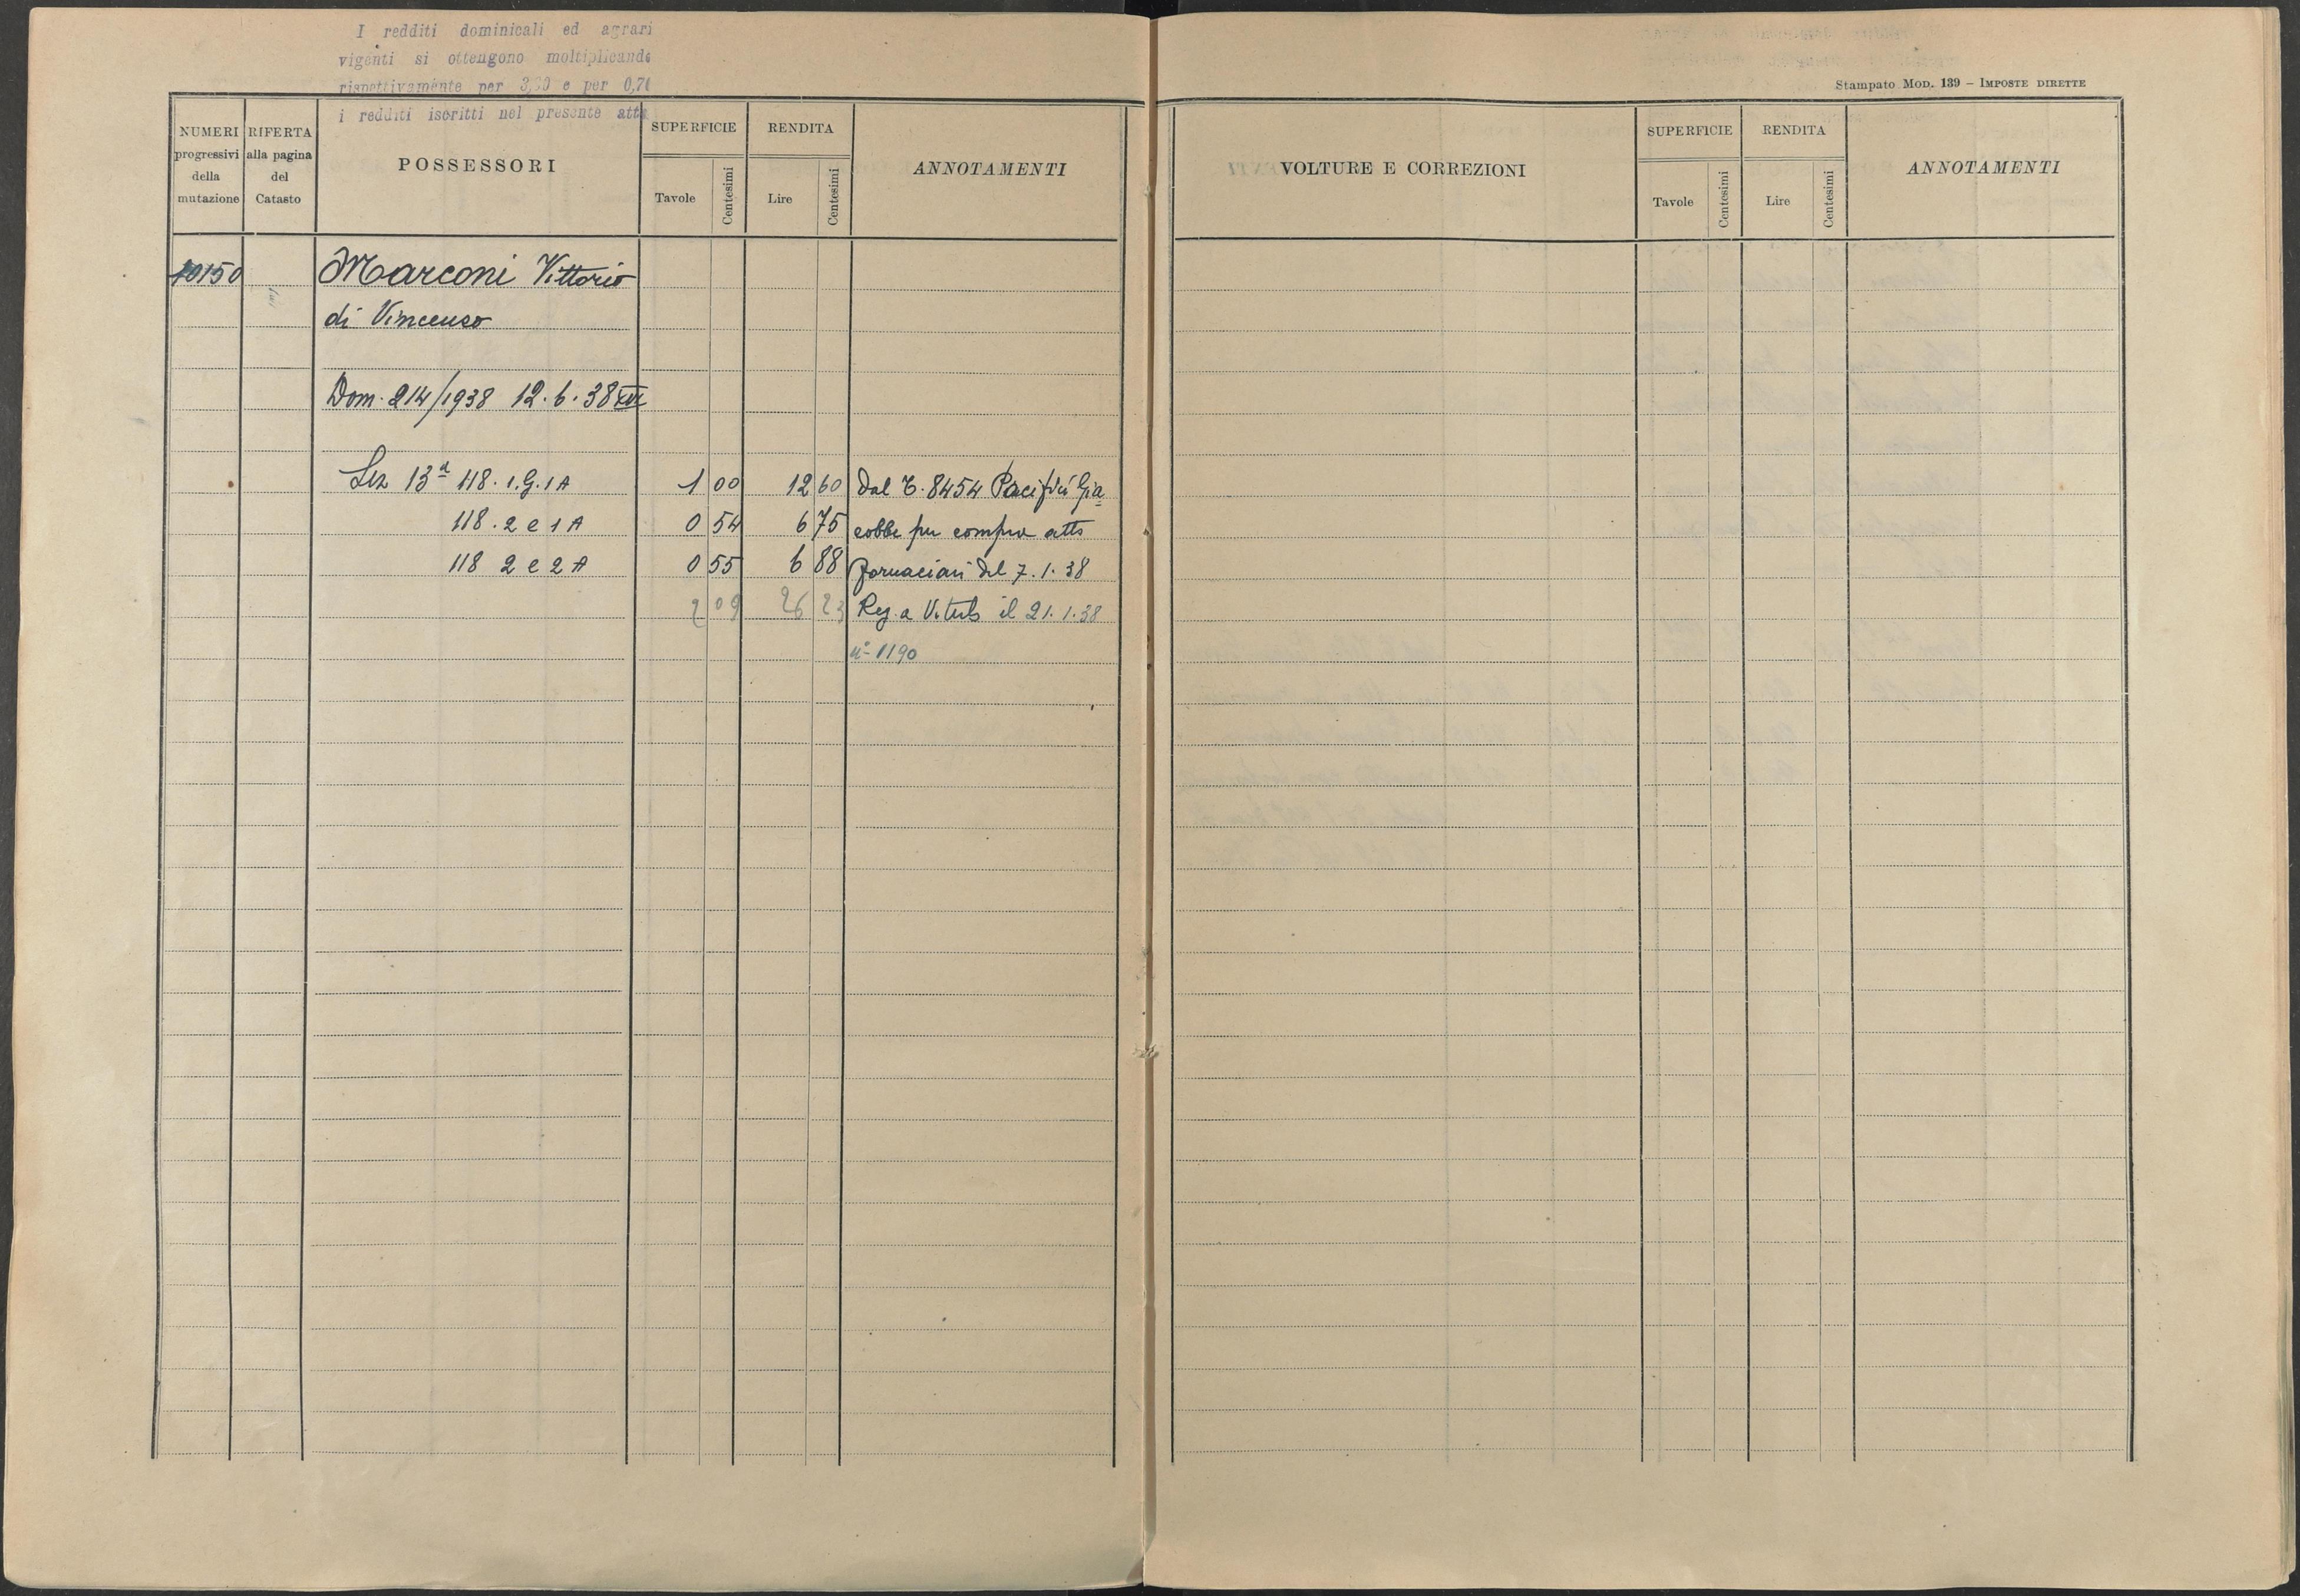 I redditi dominicali ed agrari
vigenti si ottengono moltiplicando
rispettivamente per 3,60 e per 0,70
i redditi iscritti nel presente atto
Stampato MOD. 139 – IMPOSTE DIRETTE
NUMERI progressivi della mutazione
RIFERTA alla pagina del Catasto
POSSESSORI
SUPERFICIE
Tavole
Centesimi
RENDITA
Lire
Centesimi
ANNOTAMENTI
10150 Marconi Vittorio
di Vincenzo
Dom. 214/1938 12.6.38 XVI
Sez 13a 118.1.G.1A 1 00 12 60 Dal T. 8454 Pacifici Gia=
118.2 e 1 A 0 54 6 75 cobbe per compra atto
118 2 e 2 A 0 55 6 88 Fornaciari del 7.1.38
2 09 26 23 Reg. a Viterbo il 21.1.38
n° 1190
VOLTURE E CORREZIONI
SUPERFICIE
Tavole
Centesimi
RENDITA
Lire
Centesimi
ANNOTAMENTI